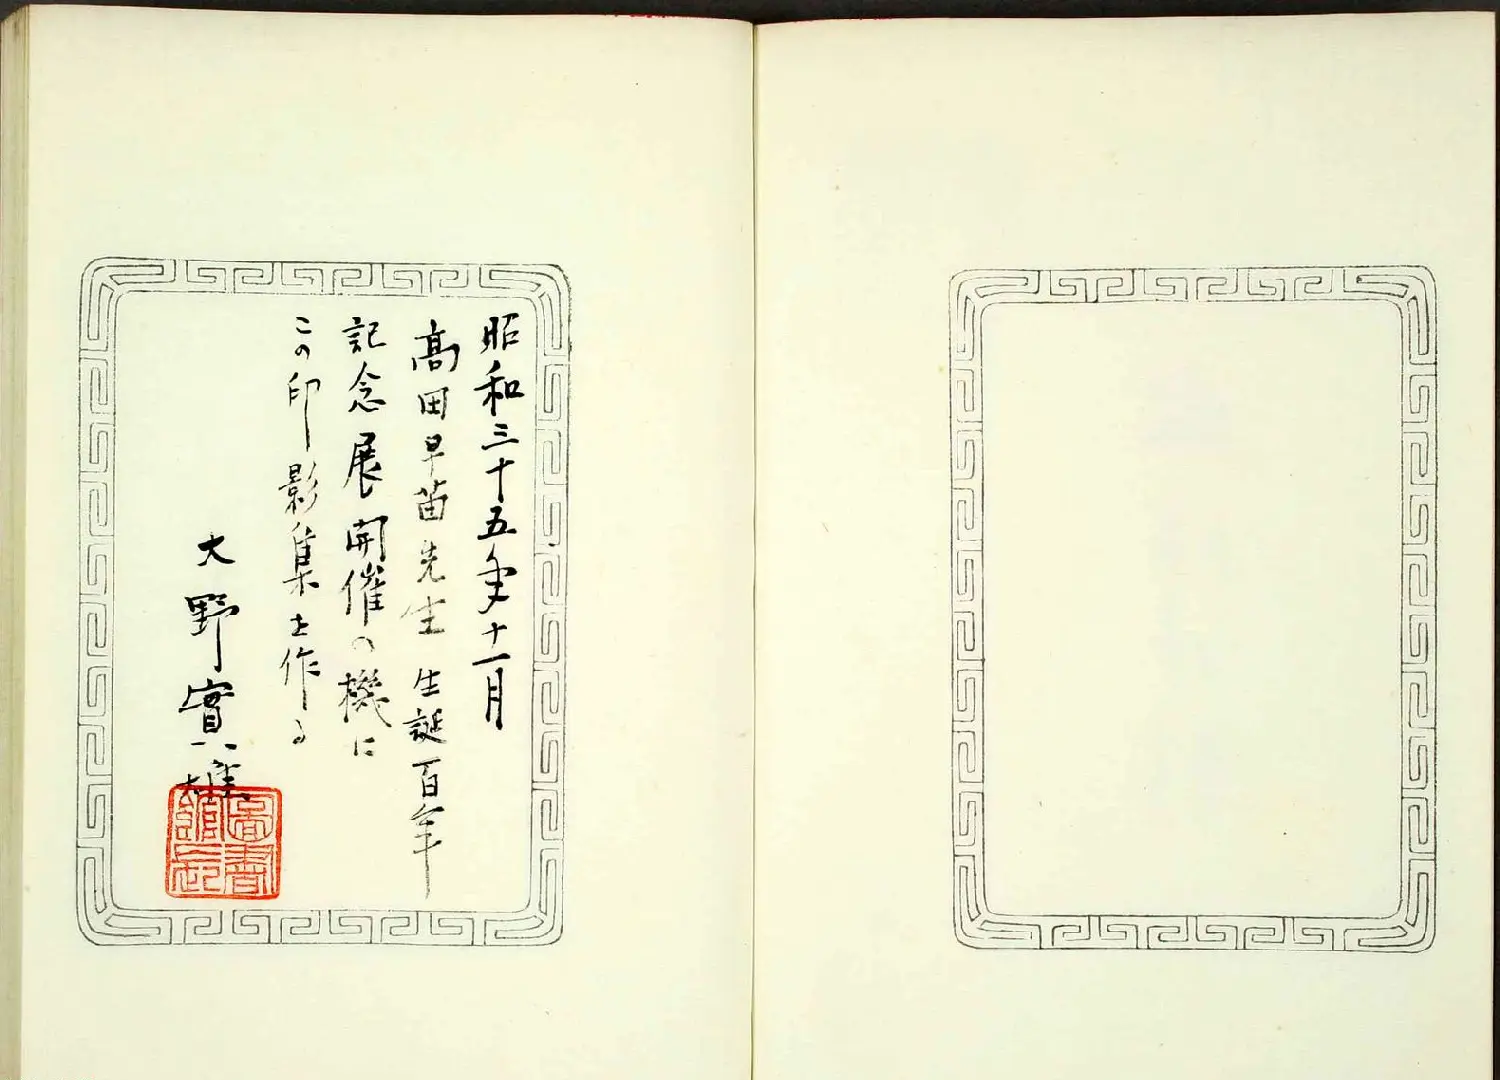 昭和三十五年十一月
高田早苗先生 生誕百年
記念展開催の機に
この印影集を作る
大野實雄
圖書館印